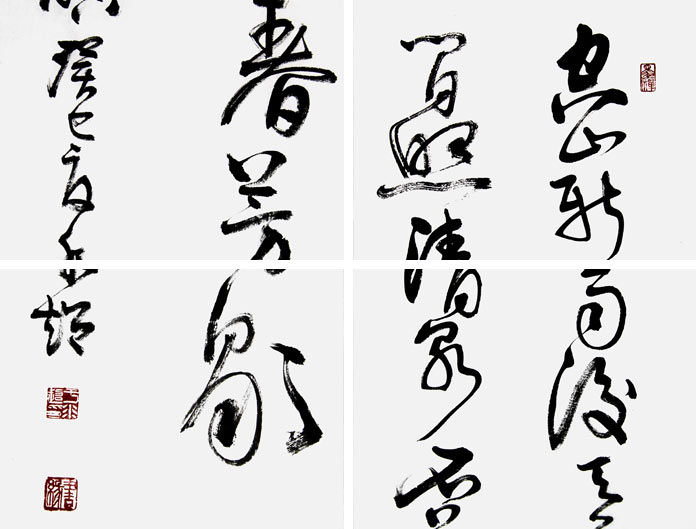 空山新雨後天
間照清泉石
春芳歇
癸巳夏